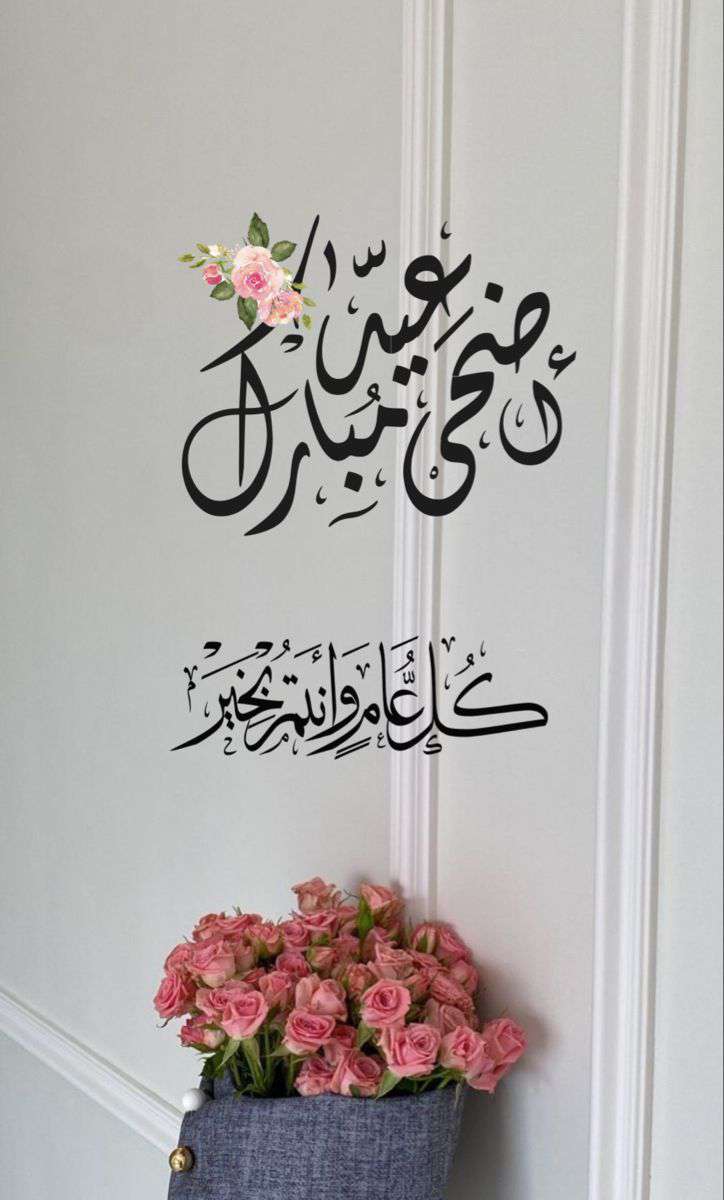 عيد
أضحى مبارك
كُلُّ عَامٍ وَأَنتُمْ بِخَيْر